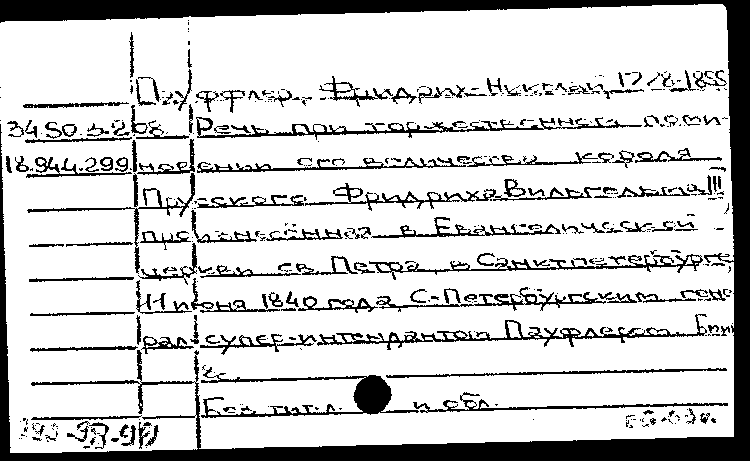 Пауффлер, Фридрих-Николай, 1778-1855
34.50.5.208 Речь при торжественном поми-
18.944.299 новении его величества короля
Прусского Фридриха Вильгельма III
произнесённая в Евангелической
церкви св. Петра, в Санктпетербурге
11 июня 1840 года С-Петербургским гене
рал-супер-интендантом Пауфлером.
2с.
Без тит. л. и обл.